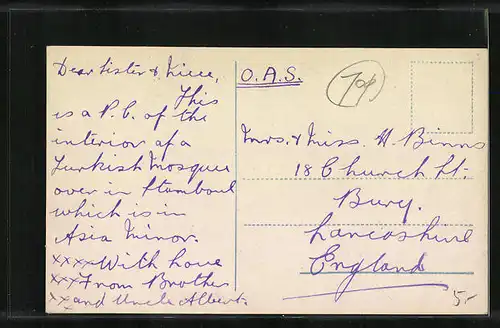 Dear Sister & Niece,
This
is a P.C. of the
interior of a
Turkish Mosque
over in Stamboul
which is in
Asia Minor.
xxxx With love
xxx From Brother
xx and Uncle Albert.
O.A.S.
Mrs. & Miss. H. Binns
18 Church St.
Bury.
Lancashire
England
5.-